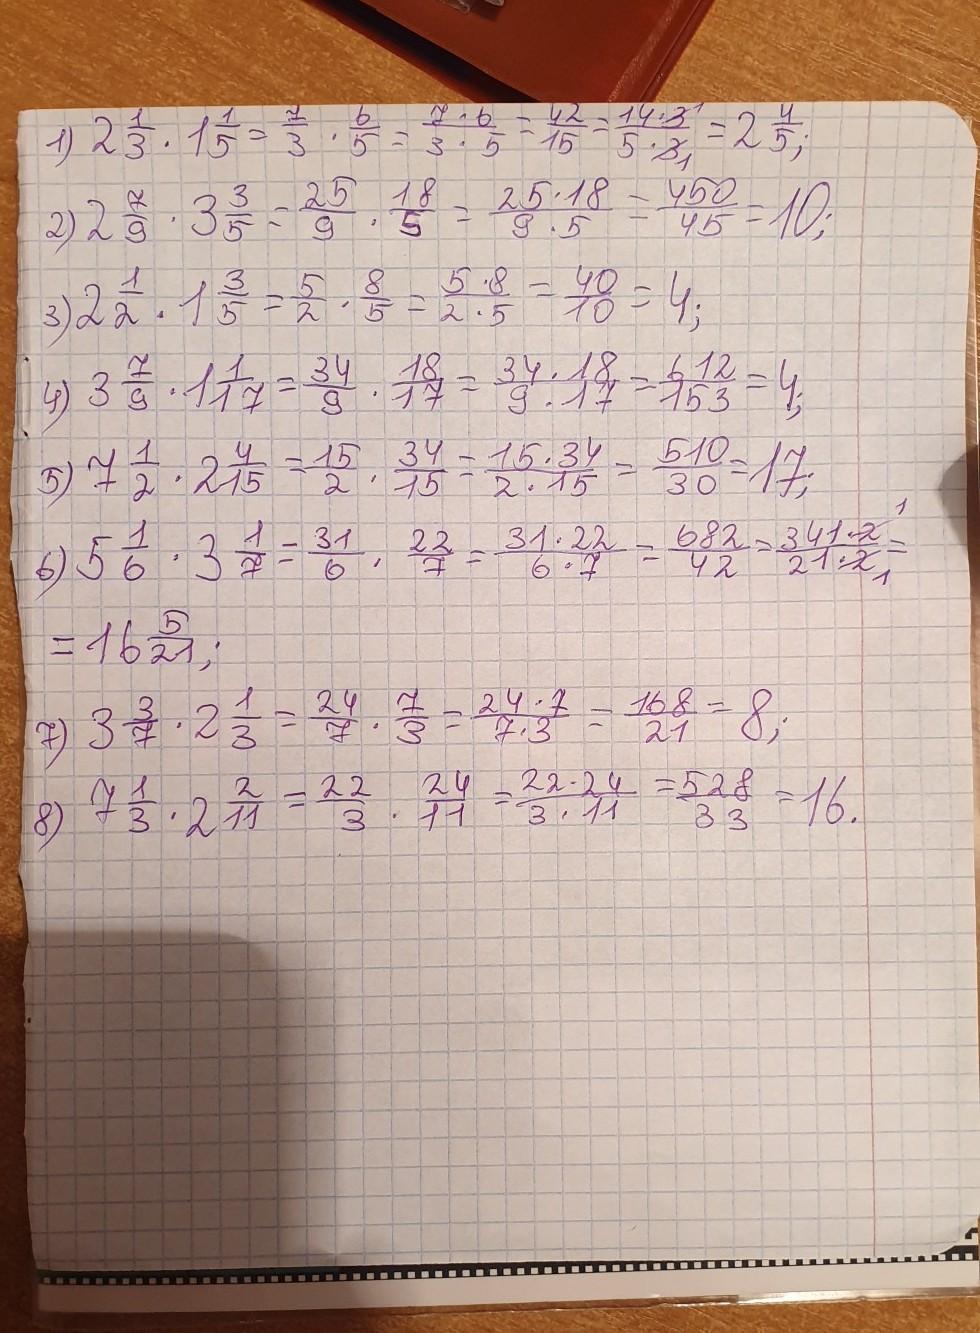 1) 2 1/3 · 1 1/5 = 7/3 · 6/5 = 7·6/3·5 = 42/15 = 14·3/5·3 = 2 4/5;
2) 2 7/9 · 3 3/5 = 25/9 · 18/5 = 25·18/9·5 = 450/45 = 10;
3) 2 1/2 · 1 3/5 = 5/2 · 8/5 = 5·8/2·5 = 40/10 = 4;
4) 3 7/9 · 1 1/17 = 34/9 · 18/17 = 34·18/9·17 = 612/153 = 4;
5) 7 1/2 · 2 4/15 = 15/2 · 34/15 = 15·34/2·15 = 510/30 = 17;
6) 5 1/6 · 3 1/7 = 31/6 · 22/7 = 31·22/6·7 = 682/42 = 341·2/21·2 =
= 16 5/21;
7) 3 3/7 · 2 1/3 = 24/7 · 7/3 = 24·7/7·3 = 168/21 = 8;
8) 7 1/3 · 2 2/11 = 22/3 · 24/11 = 22·24/3·11 = 528/33 = 16.